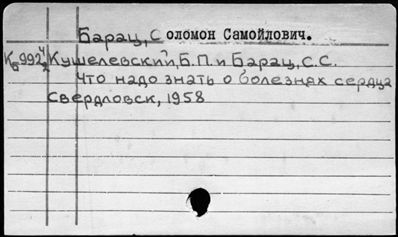 Барац, Соломон Самойлович.
Кушелевский, Б.П. и Барац, С.С.
Что надо знать о болезнях сердца
Свердловск, 1958